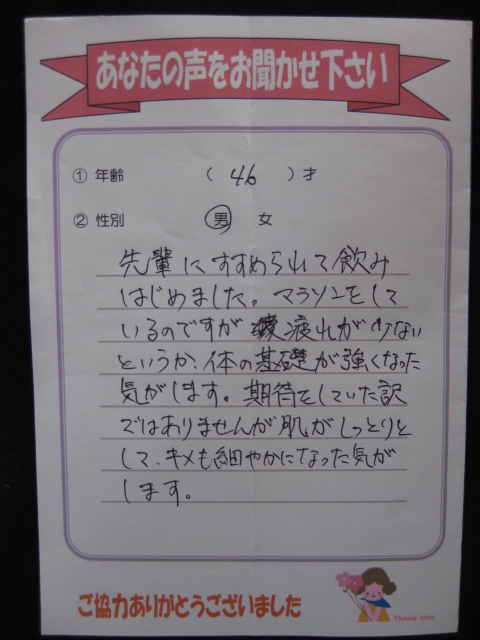 あなたの声をお聞かせ下さい
① 年齢 ( 46 ) 才
② 性別 男 女
先輩にすすめられて飲み
はじめました。マラソンをして
いるのですが疲れが少ない
というか、体の基礎が強くなった
気がします。期待をしていた訳
ではありませんが肌がしっとりと
して、キメも細やかになった気が
します。
ご協力ありがとうございました
Thank you